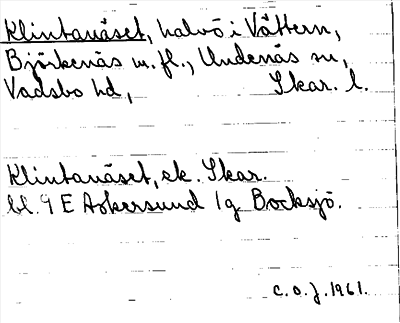 Klintanäset, halvö i Vättern,
Björkenäs m. fl., Undenäs sn,
Vadsbo hd, Skar. l.
Klintanäset, ek. Skar.
bl. 9 E Askersund 1g Bocksjö.
C. O. J. 1961.